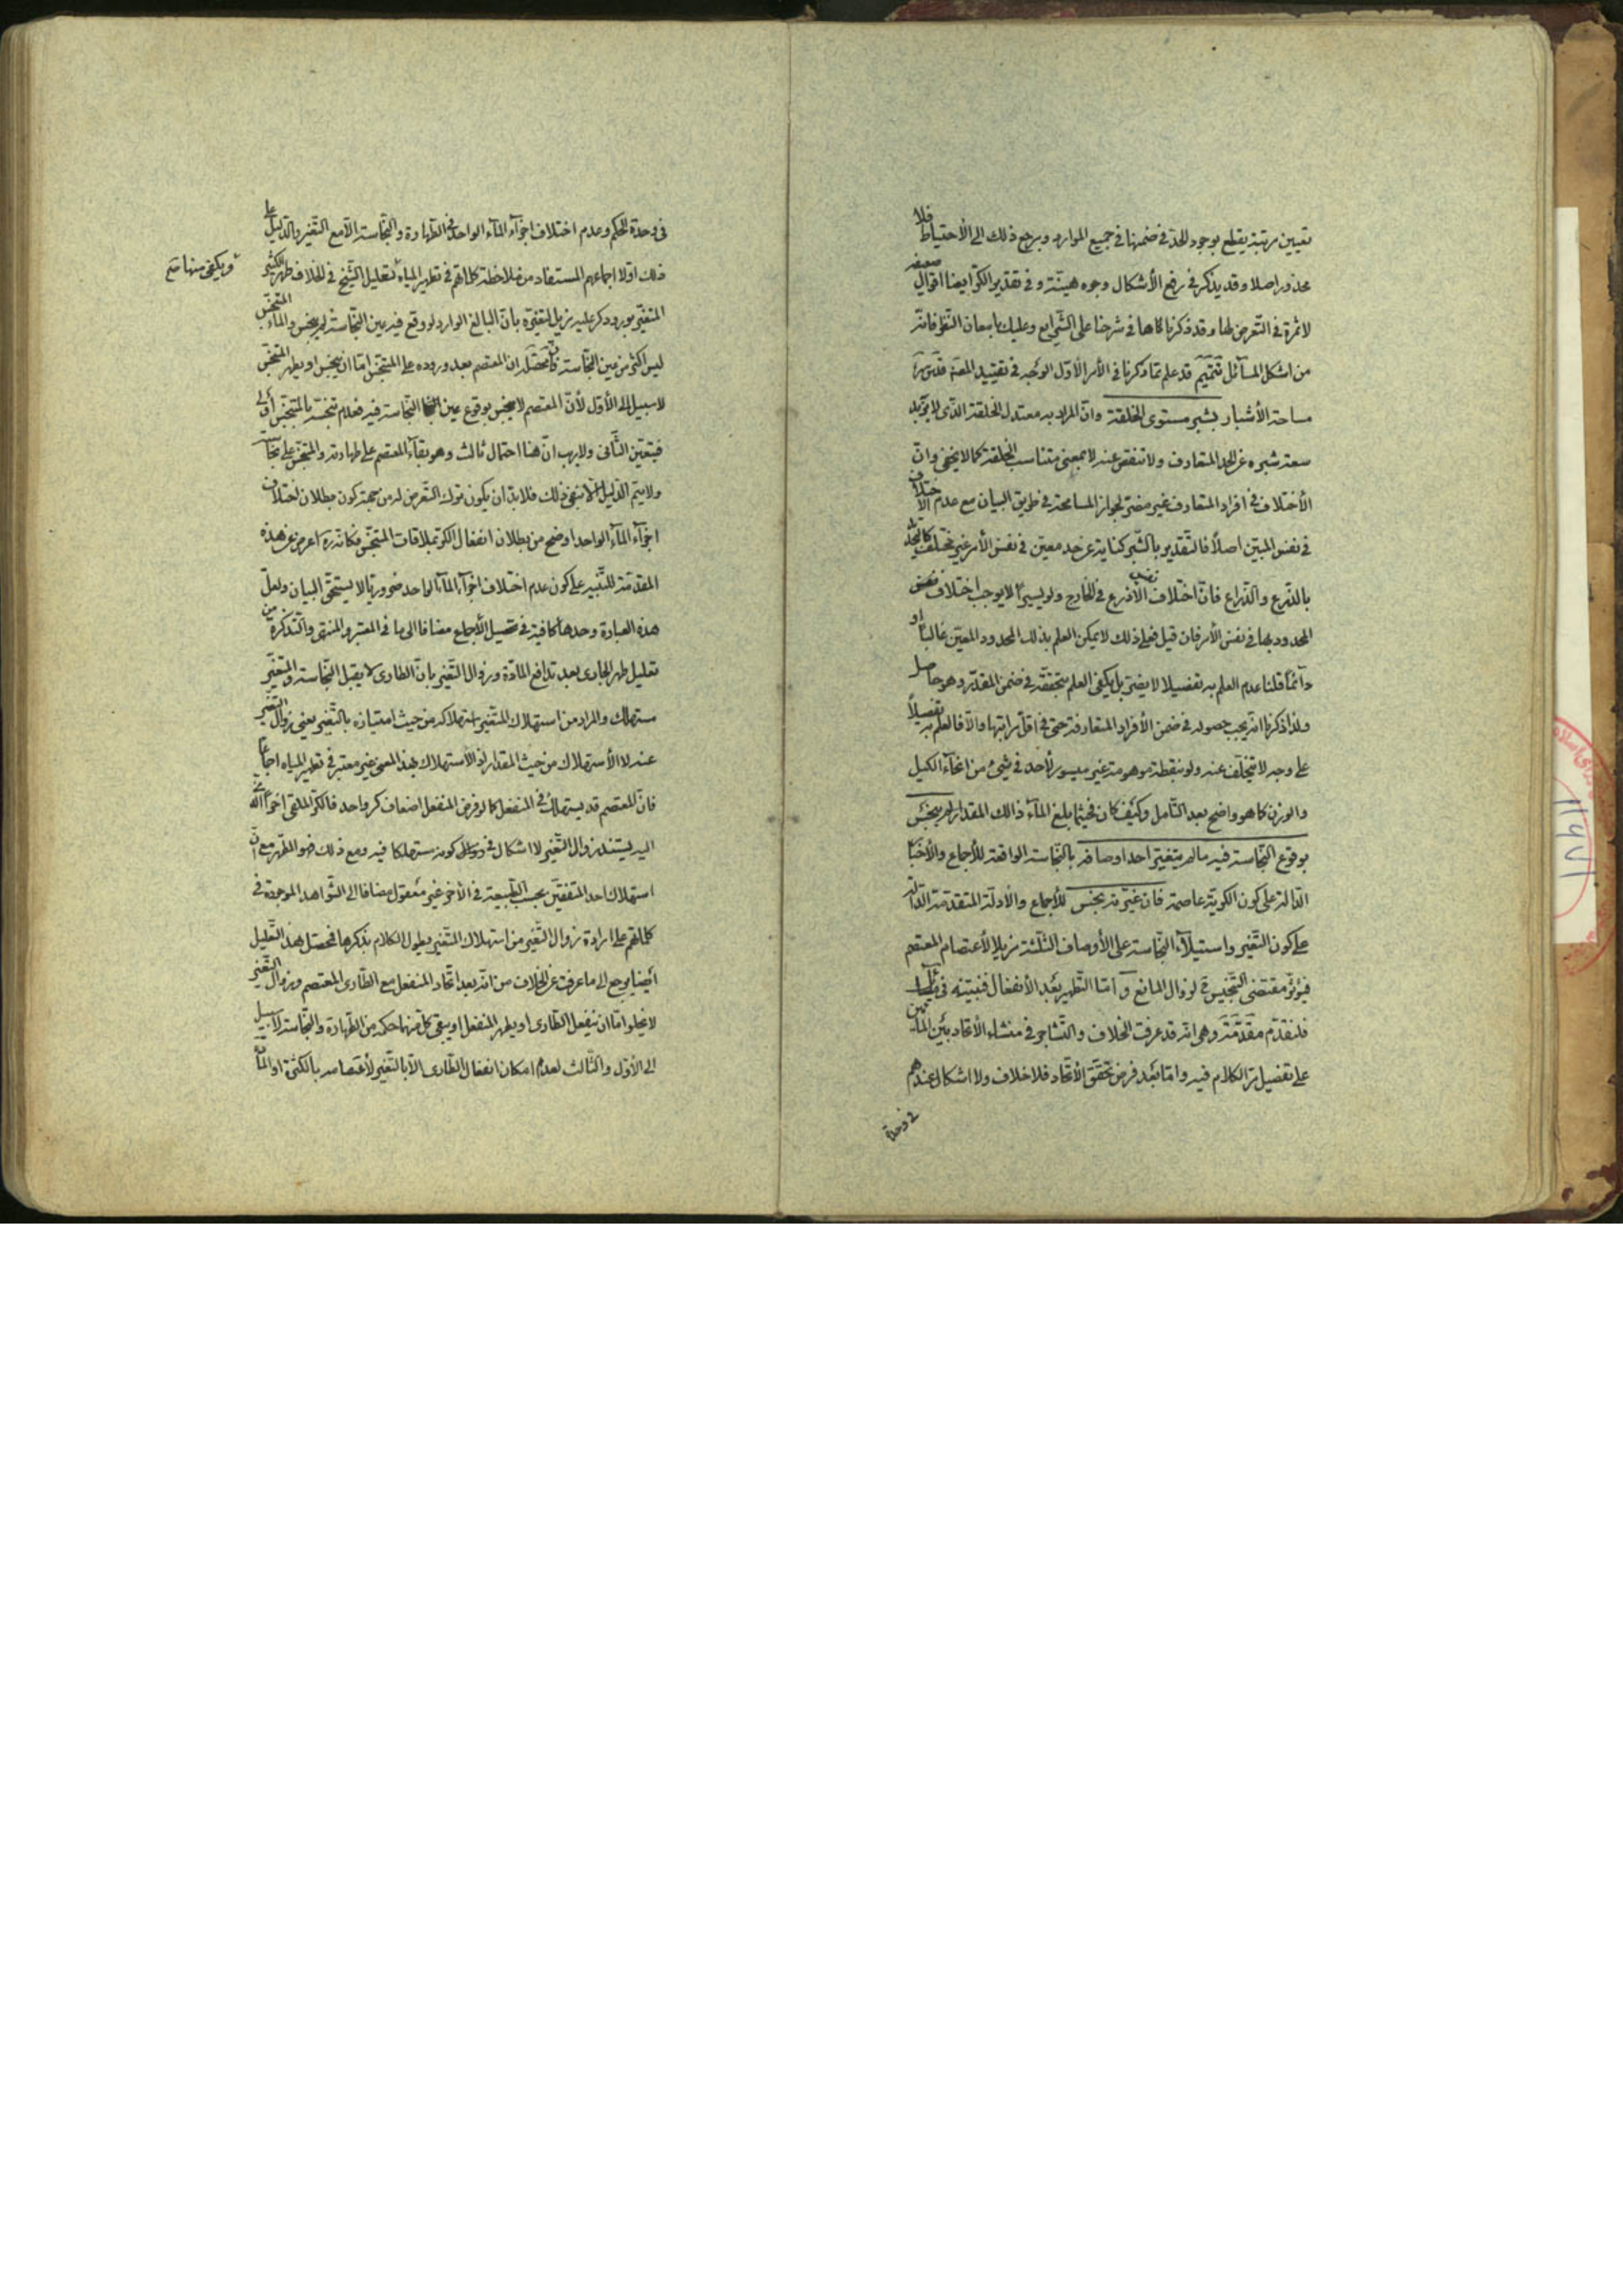 تعيين مرتبة يقطع بوجود الحدّ في ضمنها في جميع الموارد ويرجع ذلك الى الأحتياط فلا
محذور اصلا وقد يذكر في رفع الأشكال وجوه هيّنة وفي تقدير الكرّ ايضا اقوال ضعيفة
لا ثمرة في التّعرض لها وقد ذكرناها في شرحنا على الشّرايع وعليك بامعان النّظر فانّه
من اشكل المسآئل تتميم قد علم ممّا ذكرنا في الأمر الأوّل الوجه في تقييد المصنّف قدّس سرّه
مساحة الأشبار بشبر مستوى الخلقة وانّ المراد به معتدل الخلقة الّذى لا يزيد
سعة شبره عن الحد المتعارف ولا تنقص عنه لا بمعنى متناسب الخلقة كما لا يخفى وانّ
الأختلاف في افراد المتعارف غير مضرّ لجواز المسامحة في طريق البيان مع عدم الأختلاف
في نفس المبيّن اصلاً فالتّقدير بالشّبر كناية عن حد معيّن في نفس الأمر غير مختلف كالتّحديد
بالذرع والذّراع فانّ اختلاف الأذرع في الخارج ولو يسيراً لا يوجب اختلاف نفس
المحدود بها في نفس الأمر فان قيل فعلى ذلك لا يمكن العلم بذلك المحدود المعيّن غالباً او
دآئماً قلنا عدم العلم به تفصيلا لا يضرّ بل يكفى العلم بتحقّقه في ضمن المقدّر وهو حاصل
ولذا ذكرنا انّه يجب حصوله في ضمن الأفراد المتعارفة حتى في اقلّ مراتبها والّا فالعلم به تفصيلاً
على وجه لا يتخلّف عنه ولو بنقطة موهومة غير ميسور لأحد في شيئ من انحآء الكيل
والوزن كما هو واضح بعد التّأمل وكيف كان فحيثما بلغ المآء ذالك المقدار لم ينجّس
بوقوع النّجاسة فيه ما لم يتغيّر احد اوصافه بالنّجاسة الواقعة للأجماع والأخبار
الدّالة على كون الكرّية عاصمة فان غيّرته نجس للأجماع والأدلّة المتقدّمة الدّالة
على كون التّغير واستيلآء النّجاسة على الأوصاف الثّلثة مزيلا لأعتصام المعتصم
فيؤثّر مقتضى التّنجيس لزوال المانع و امّا التّطهير بعد الأنفعال فنبيّنه في
فلنقدّم مقدّمة وهى انّه قد عرفت الخلاف والتّشاجر في منشاء الأتحاد بين المآئين
على تفصيل مرّ الكلام فيه وامّا بعد فرض تحقّق الأتّحاد فلا خلاف ولا اشكال عندهم
في وحدة
في وحدة الحكم وعدم اختلاف اجزآء المآء الواحد في الطّهارة والنّجاسة الّا مع التّغير والدّليل على
ذلك اوّلا اجماعهم المستفاد من ملاحظة كلماتهم في تطهير المياه كتعليل الشّيخ في الخلاف طهر الكثير
ويكفى منها
المتغيّر بورود كر عليه يزيل تغيّره بأنّ البالغ الوارد لو وقع فيه عين النّجاسة لم ينجس والماء المتنجّس
ليس اكثر من عين النّجاسة فانّ محصّله ان المعتصم بعد وروده على المتنجّس امّا ان ينجس او يطهر المتنجّس
لا سبيل الى الأوّل لأنّ المعتصم لا ينجس بوقوع عين النّجاسة فيه فعدم تنجّسه بالمتنجّس أولى
فيتعيّن الثّانى ولا ريب انّ هنا احتمال ثالث وهو بقآء المعتصم على طهارته والمتنجّس على نجاسته
ولا يتمّ الدّليل الّا بنفى ذلك فلا بدّ ان يكون ترك التّعرض له من جهة كون بطلان اختلاف
اجزآء المآء الواحد اوضح من بطلان انفعال الكرّ بملاقات المتنجّس فكانّه ره اعرض عن هذه
المقدّمة للتّنبيه على كون عدم اختلاف اجزآء المآء الواحد ضروريّا لا يستحقّ البيان ولعلّ
هذه العبارة وحدها كافية في تحصيل الأجماع مضافا الى ما في المعتبر والمنتهى والتّذكرة من
تعليل طهر الجارى بعد تدافع المادّة وزوال التّغير بانّ الطّارى لا يقبل النّجاسة والمتغيّر
مستهلك والمراد من استهلاك المتغيّر استهلاكه من حيث امتيازه بالتّغير يعنى زوال التّغير
عنه لا الأستهلاك من حيث المقدار اذ الأستهلاك بهذا المعنى غير معتبر في تطهير المياه اجماعاً
فانّ المعتصم قد يستهلك في المنفعل كما لو فرض المنفعل اضعاف كر واحد فالكرّ الملقى اخراً الّذى
اليه يستند زوال التّغير لا اشكال في كونه مستهلكا فيه ومع ذلك هو المطهّر مع انّ
استهلاك احد المتفقين بحسب الطّبيعة في الأخر غير معقول مضافا الى الشّواهد الموجودة في
كلماتهم على ارادة زوال التّغير من استهلاك المتّغير يطول الكلام بذكرها فمحصّل هذا التّعليل
أيضا يرجع الى ما عرفت عن الخلاف من انّه بعد اتّحاد المنفعل مع الطّارى المعتصم وزوال التّغير
لا يخلوا امّا ان ينفعل الطّارى او يطهر المنفعل او يبقى كلّ منهما حكمه من الطّهارة والنّجاسة لا سبيل
الى الأوّل والثّالث لعدم امكان انفعال الطّارى الّا بالتّغير لأعتصامه بالكثرة او المادّة